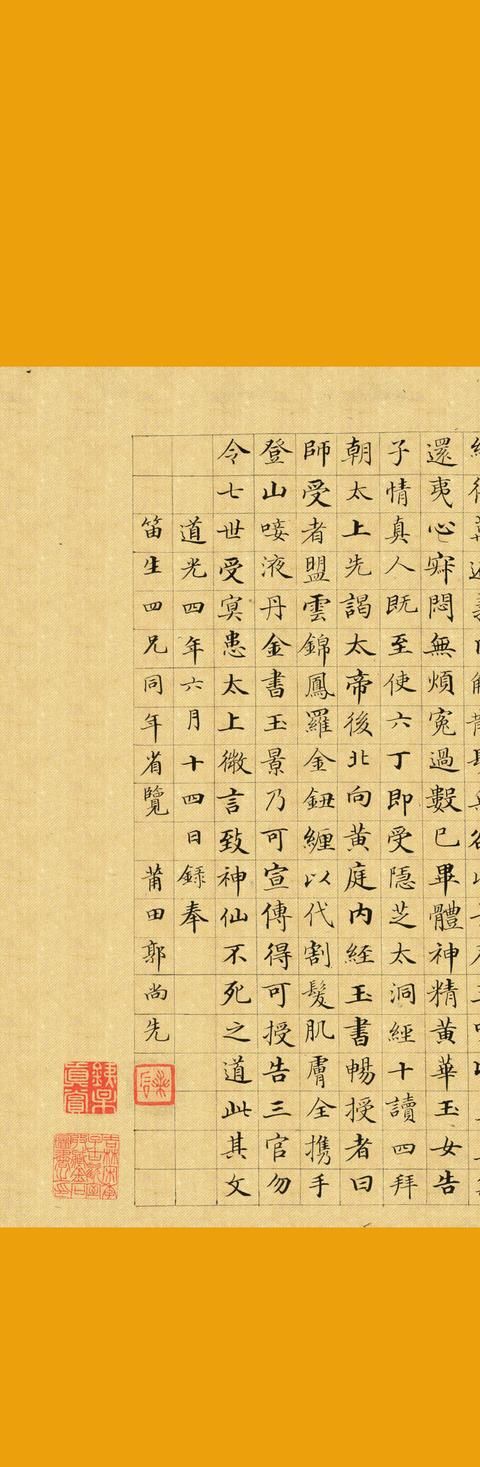 還夷心寂悶無煩寃過數已畢體神精黃華玉女告
子情真人既至使六丁即受隱芝太洞經十讀四拜
朝太上先謁太帝後北向黃庭内経玉書暢授者曰
師受者盟雲錦鳳羅金鈕纏以代割髮肌膚全攜手
登山唼液丹金書玉景乃可宣傳得可授告三官勿
令七世受冥患太上微言致神仙不死之道此其文
道光四年六月十四日錄奉
笛生四兄同年省覽 莆田郭尚先